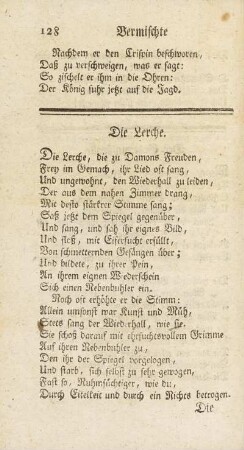 128 Vermischte
Nachdem er den Crispin beschworen,
Daß zu verschweigen, was er sagt:
So zischelt er ihm in die Ohren:
Der König fuhr jetzt auf die Jagd.
Die Lerche.
Die Lerche, die zu Damons Freuden,
Frey im Gemach, ihr Lied oft sang,
Und ungewohnt, den Wiederhall zu leiden,
Der aus dem nahen Zimmer drang,
Mit desto stärkrer Stimme sang;
Saß jetzt dem Spiegel gegenüber,
Und sang, und sah ihr eignes Bild,
Und floß, mit Eifersucht erfüllt,
Von schmetternden Gesängen über;
Und bildete, zu ihrer Pein,
An ihrem eignen Wiederschein
Sich einen Nebenbuhler ein.
Noch oft erhöhte er die Stimm:
Allein umsonst war Kunst und Müh,
Stets sang der Wiederhall, wie sie.
Sie schoß darauf mit ehrsuchtsvollem Grimme
Auf ihren Nebenbuhler zu,
Den ihr der Spiegel vorgelogen,
Und starb, sich selbst zu sehr gewogen,
Fast so, Ruhmsüchtiger, wie du,
Durch Eitelkeit und durch ein Nichts betrogen.
Die